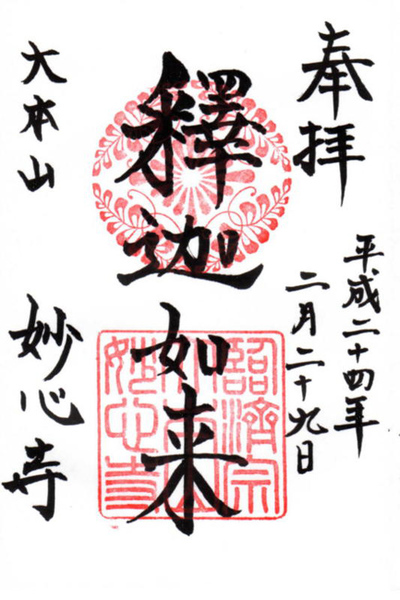 奉拝
平成二十四年
二月二十九日
釋迦如来
大本山
妙心寺
臨済宗
大本山
妙心寺